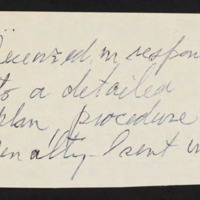 Received in respon
to a detailed
plan, procedure
enalty - I sent in